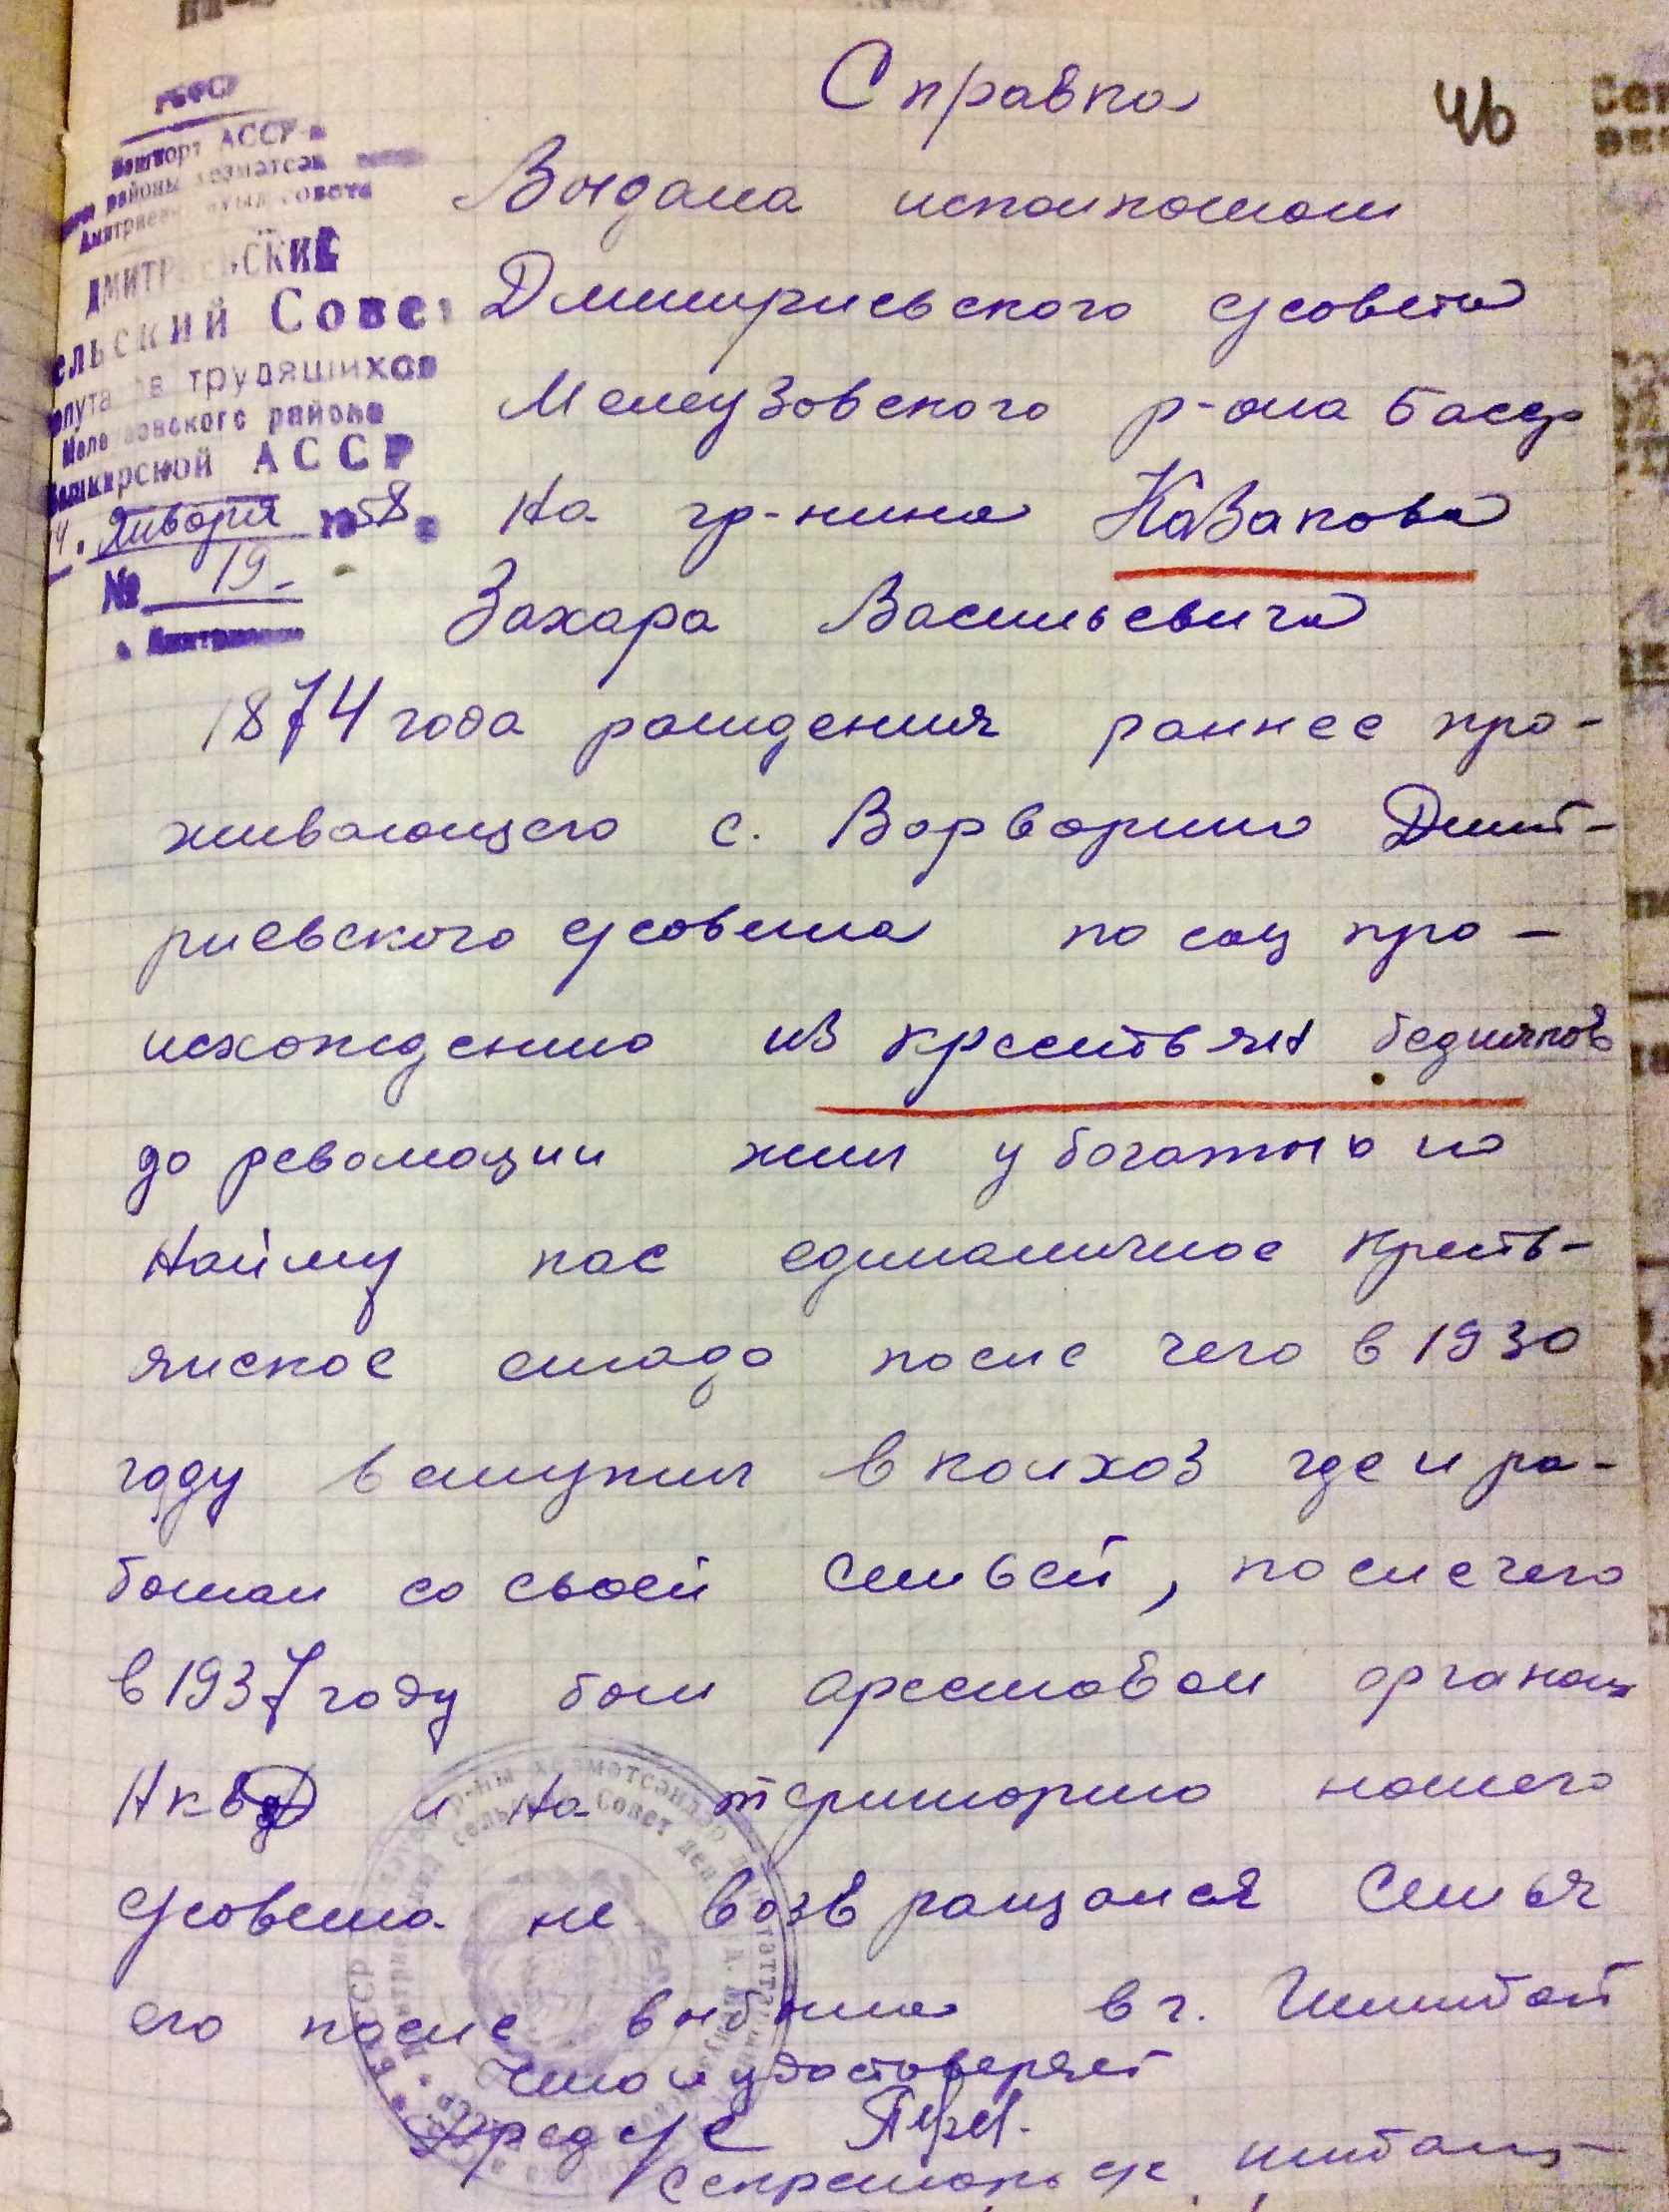 Справка
46
РСФСР
Башкорт АССР-ы
районы хезмәтсән
Дмитриев ауыл советы
ДМИТРИЕВСКИЙ
СЕЛЬСКИЙ Совет
депутатов трудящихся
Мелеузовского района
Башкирской АССР
Января 1958 г.
№ 19
Выдана исполкомом
Дмитриевского с/совета
Мелеузовского р-она Басср
На гр-нина Казакова
Захара Васильевича
1874 года рождения раннее про-
живающего с. Варварино Дмит-
риевского с/совета по соц про-
исхождению из крестьян бедняков
до революции жил у богатых по
Найму пас единаличное кресть-
янское стадо после чего в 1930
году вступил в колхоз где и ра-
ботал со своей семьей, после чего
в 1937 году был арестован органам
Нквд и на територию нашего
с/совета не возвращался Семья
его после выбыла в г. Ишимбай
Что и удостоверяет
Предс с/с
Секретарь с/с